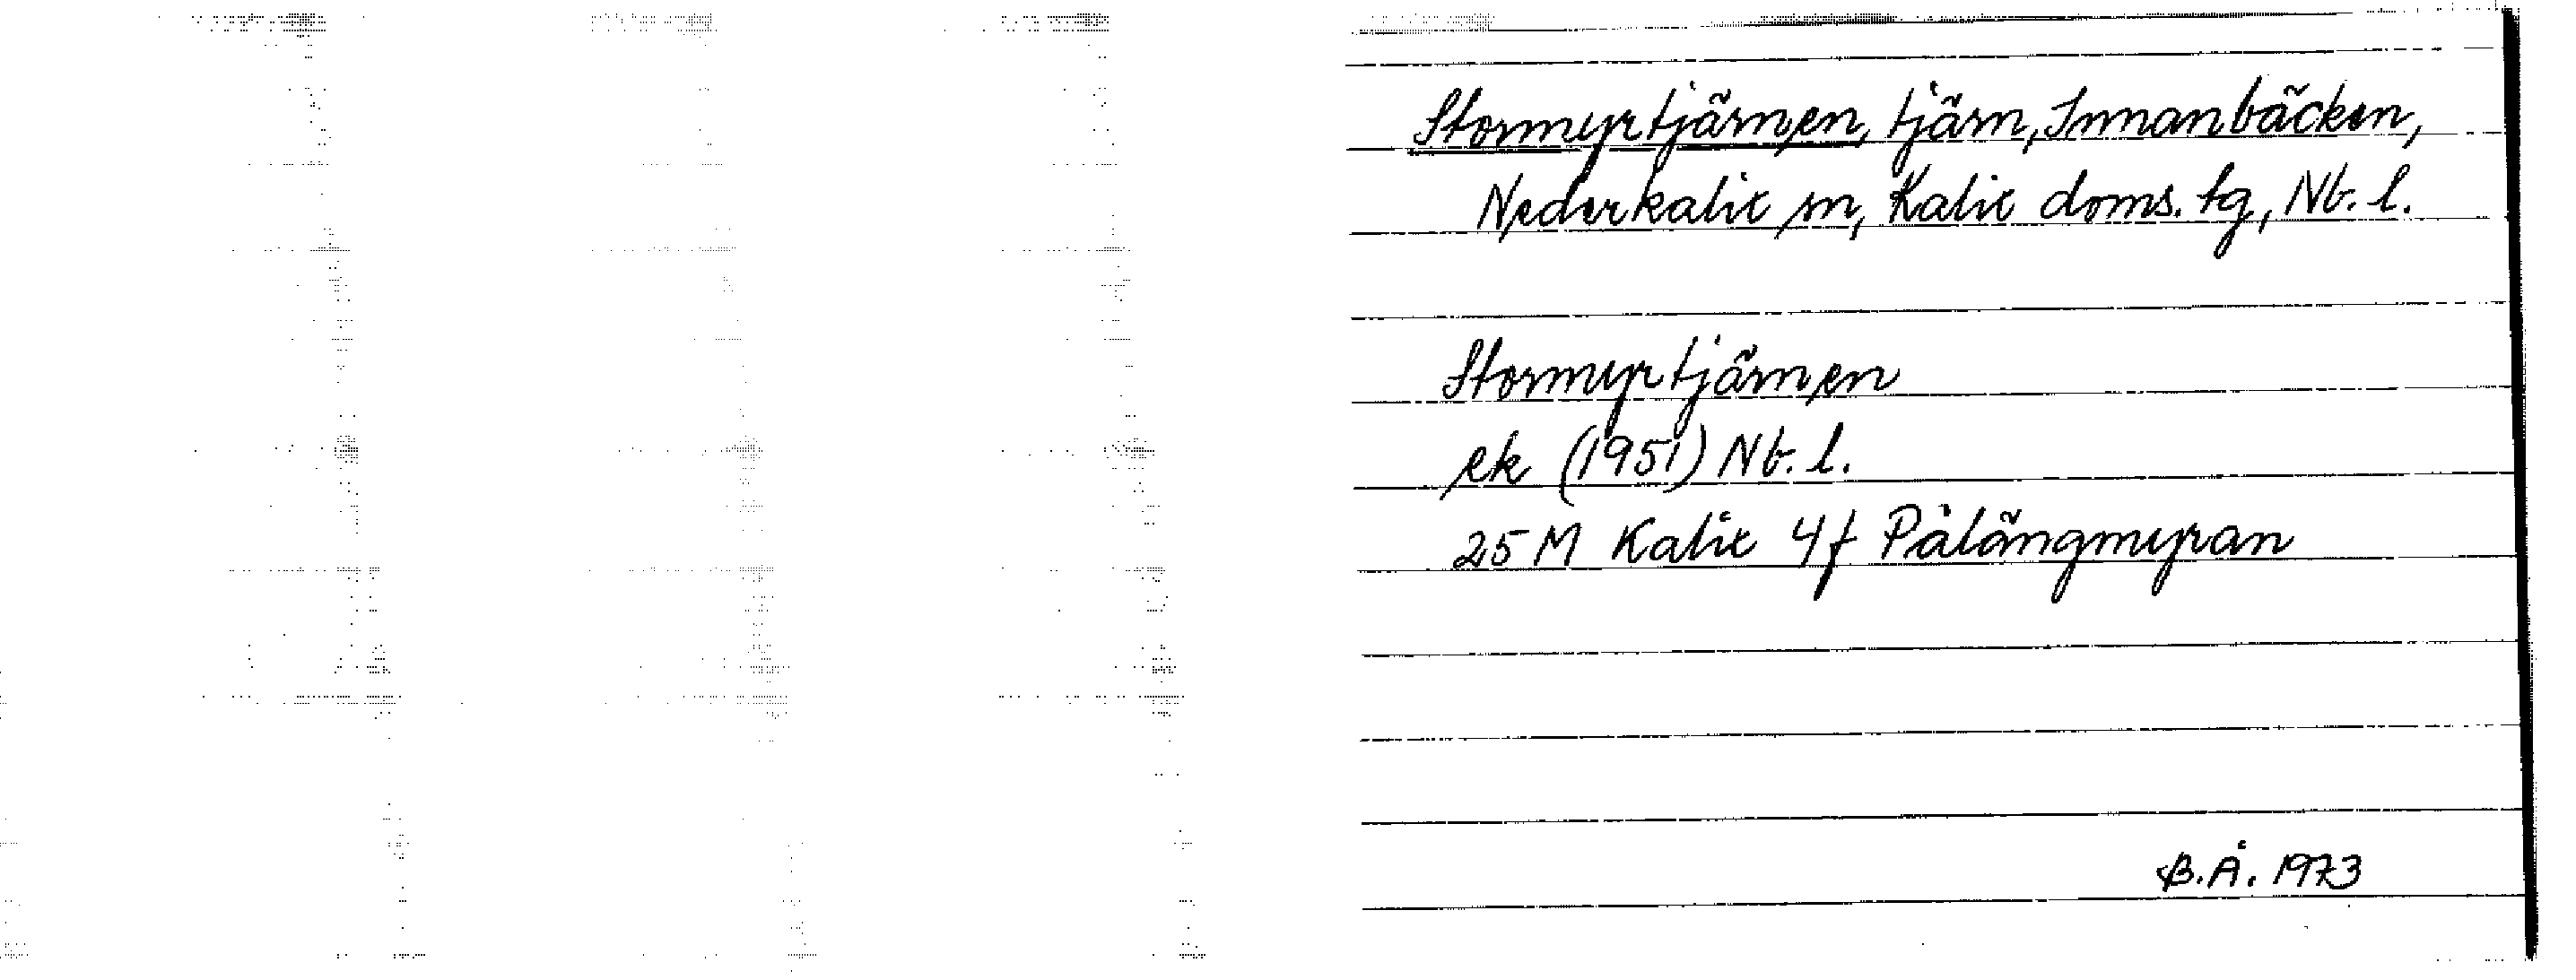 Stormyrtjärnen, tjärn, Innanbäcken,
Nederkalix sn, Kalix doms. tg, Nb. l.
Stormyrtjärnen
ek (1951) Nb. l.
25 M Kalix 4f Pålängmyran
B.Å. 1973